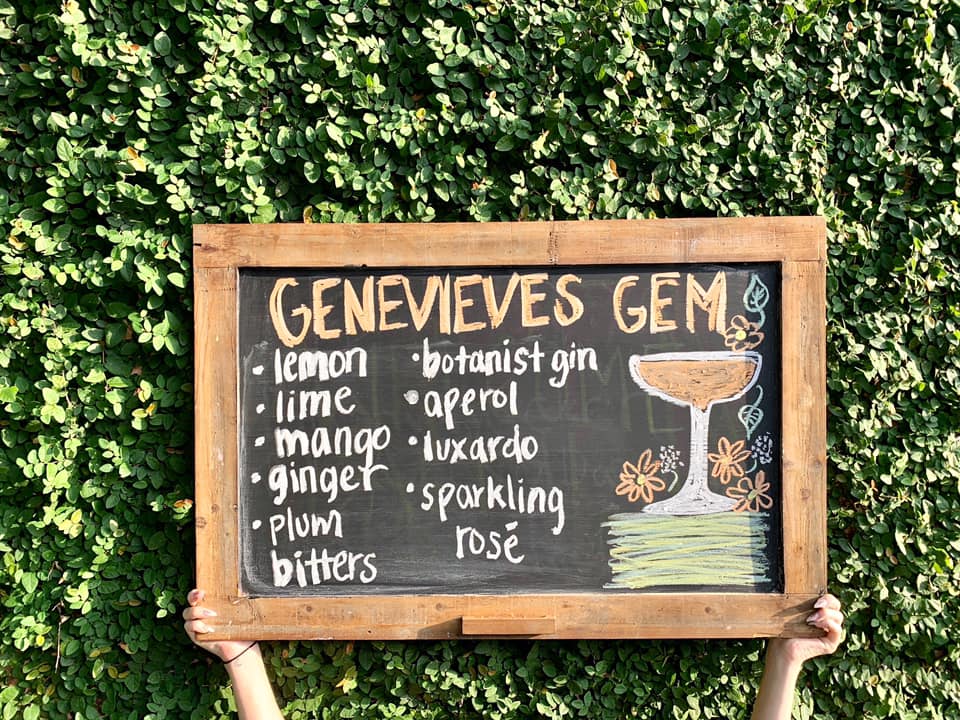 GENEVIEVES GEM
• lemon
• lime
• mango
• ginger
• plum
bitters
• botanist gin
• aperol
• luxardo
• sparkling
rosé